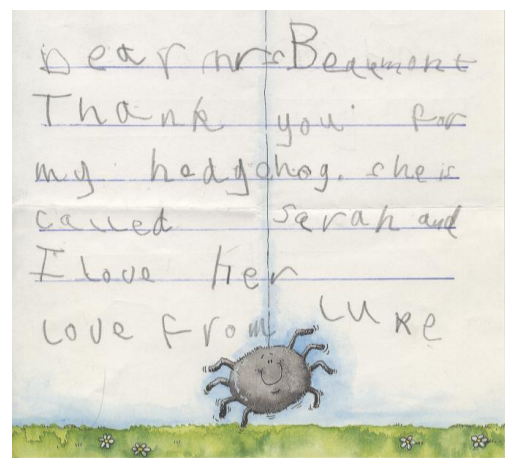 Dear mrs Beaumont
Thank you for
my hedgehog. she is
called Sarah and
I love her
love from Luke